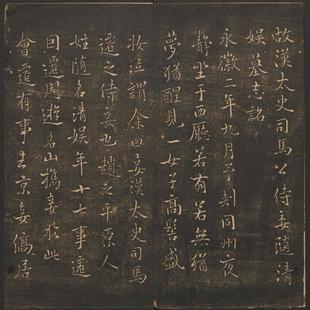 故漢太史司馬公侍妾隨清
娛墓志銘
永徽二年九月予判同州夜
靜坐于西廳若有若無猶
夢猶醒見一女子高髻盛
妝泣謂余曰妾漢太史司馬
遷之侍妾也趙之平原人
姓隨名清娛年十七事遷
因遷周遊名山攜妾於此
會遷有事去京妾僑居